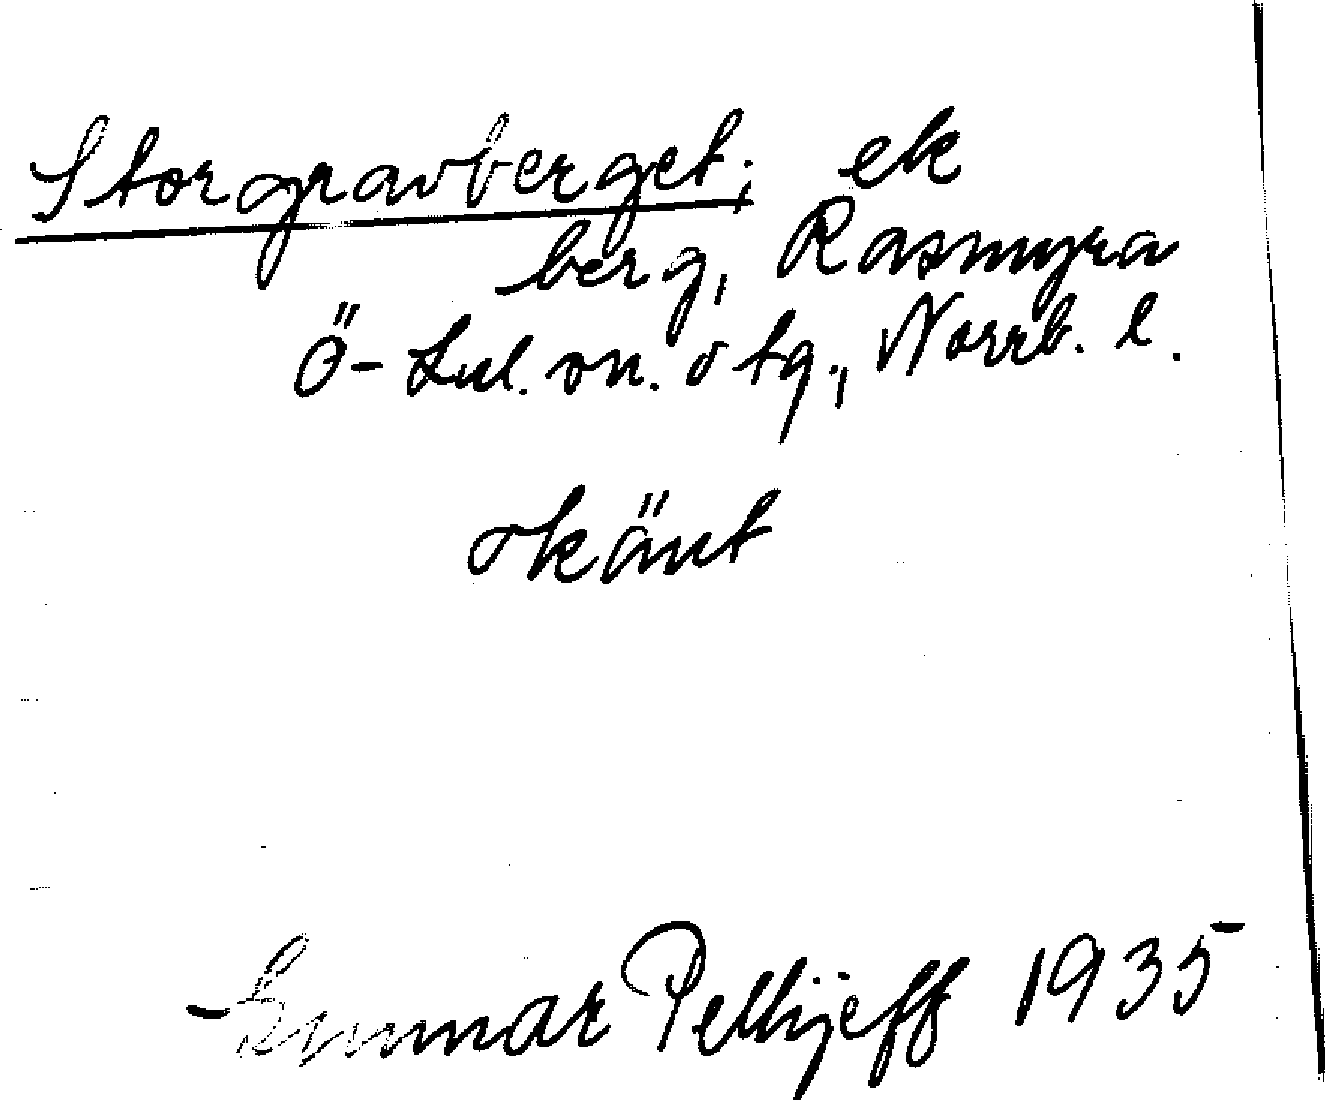 Storgravberget; ek
berg, Rasmyra
Ö-Lul. sn. o tg., Norrb. l.
okänt
Gunnar Pellijeff 1935